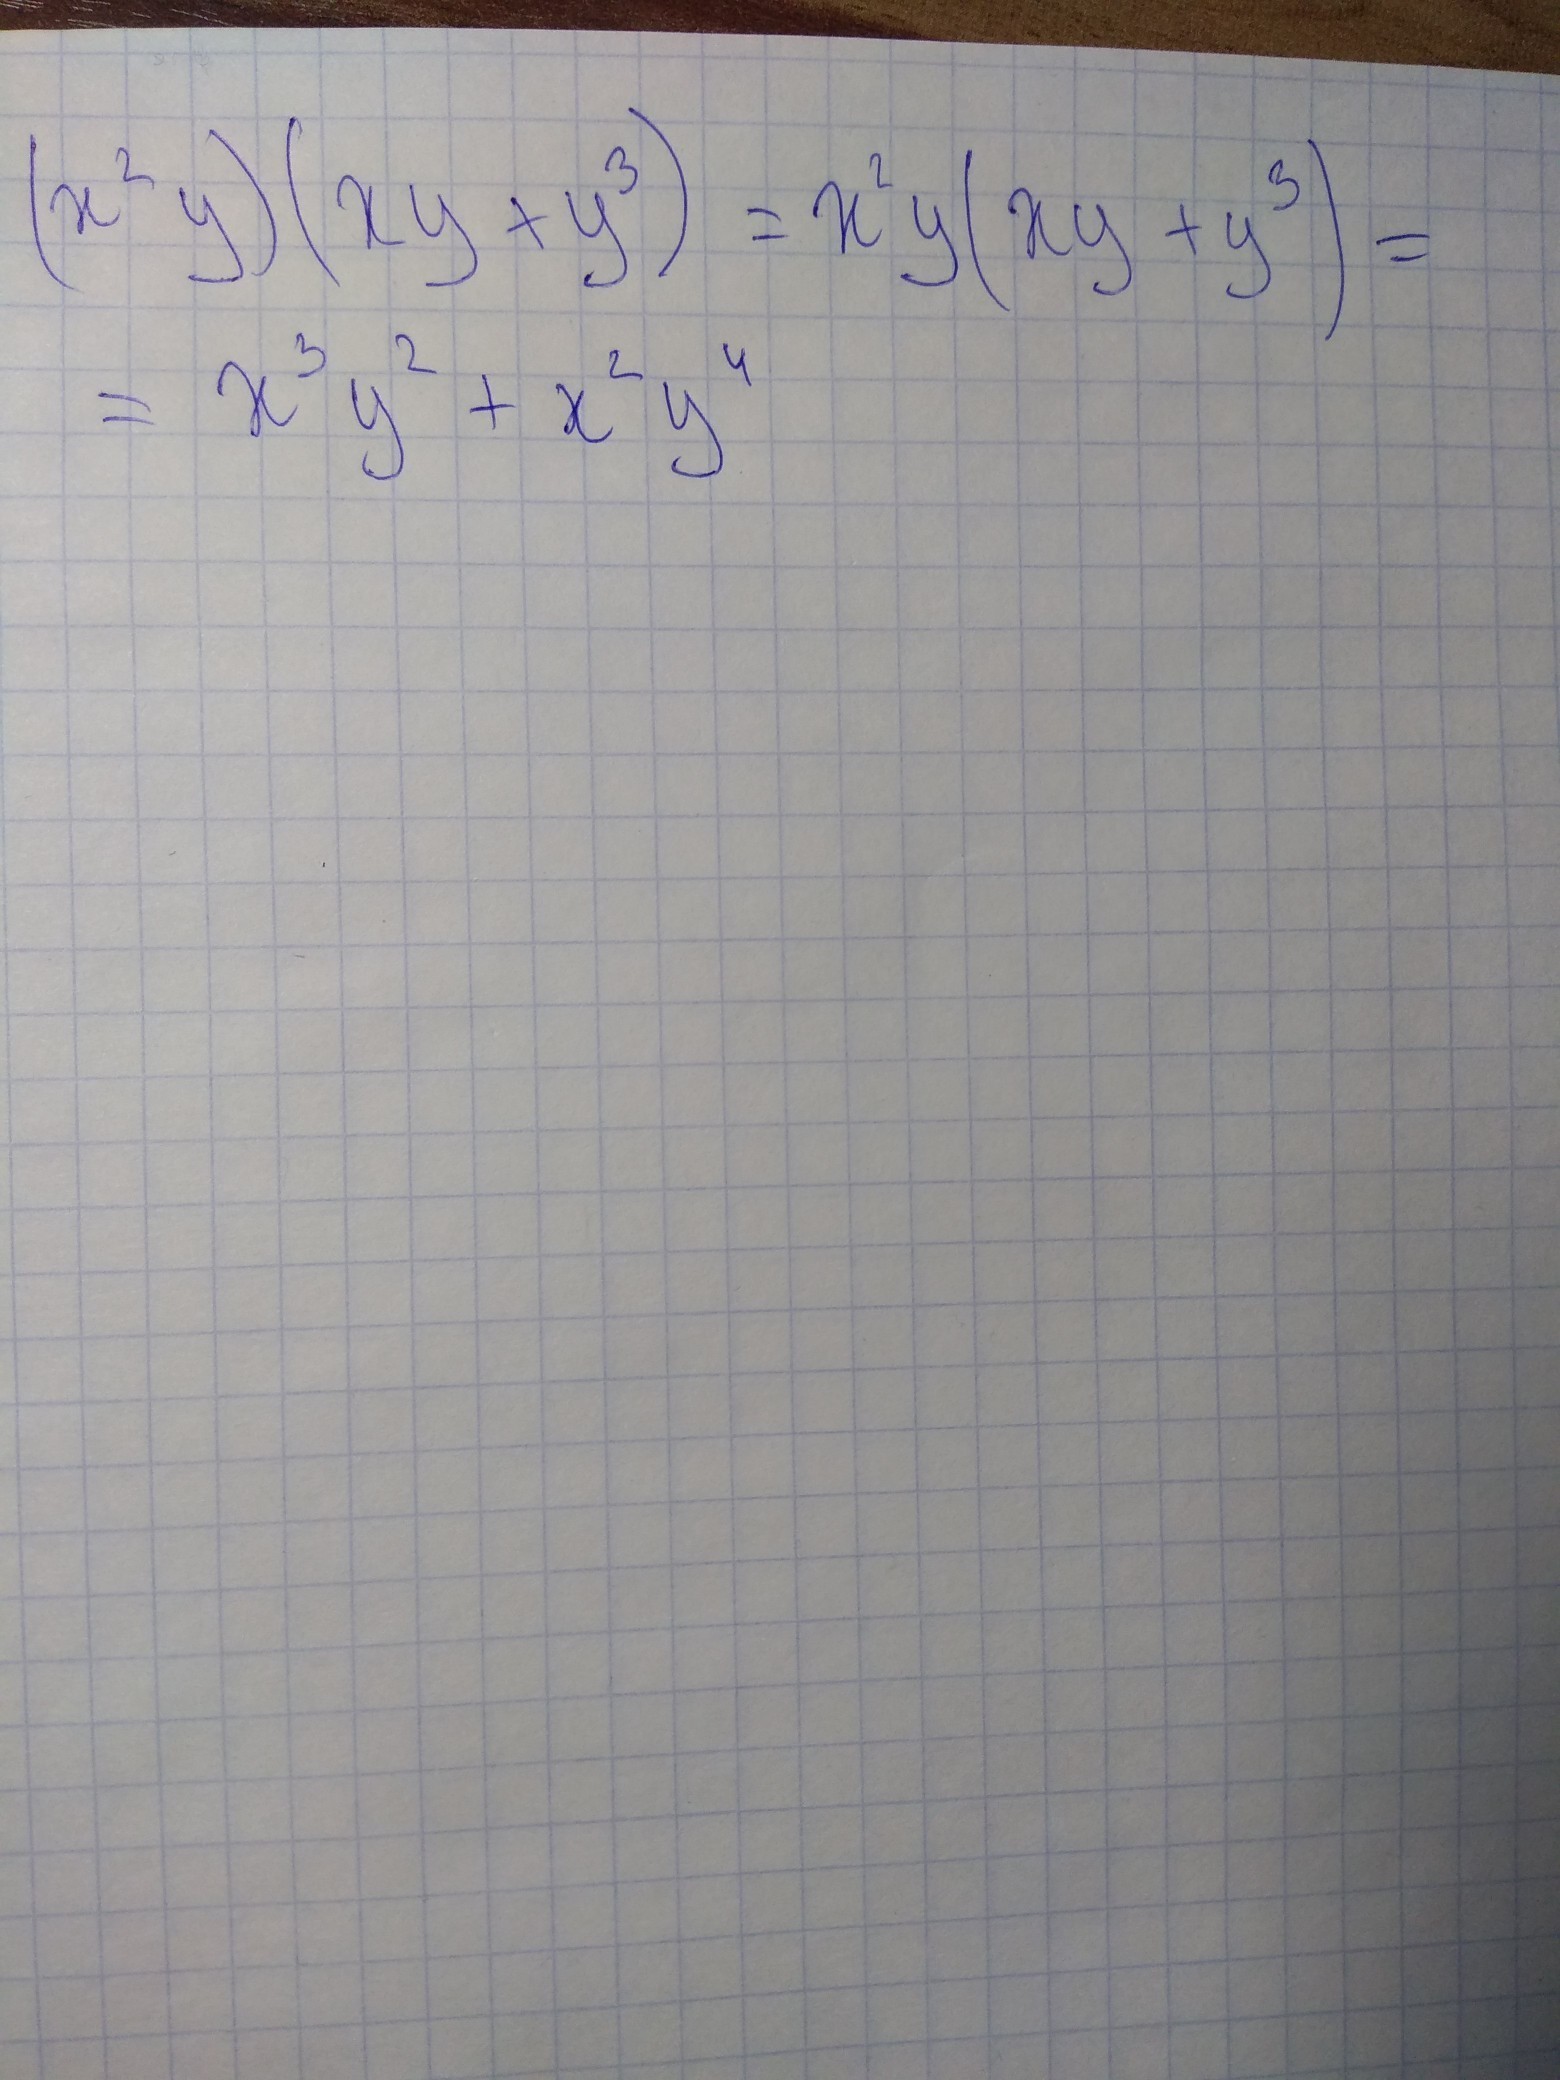 (x²y)(xy+y³) = x²y(xy+y³) =
= x³y² + x²y⁴